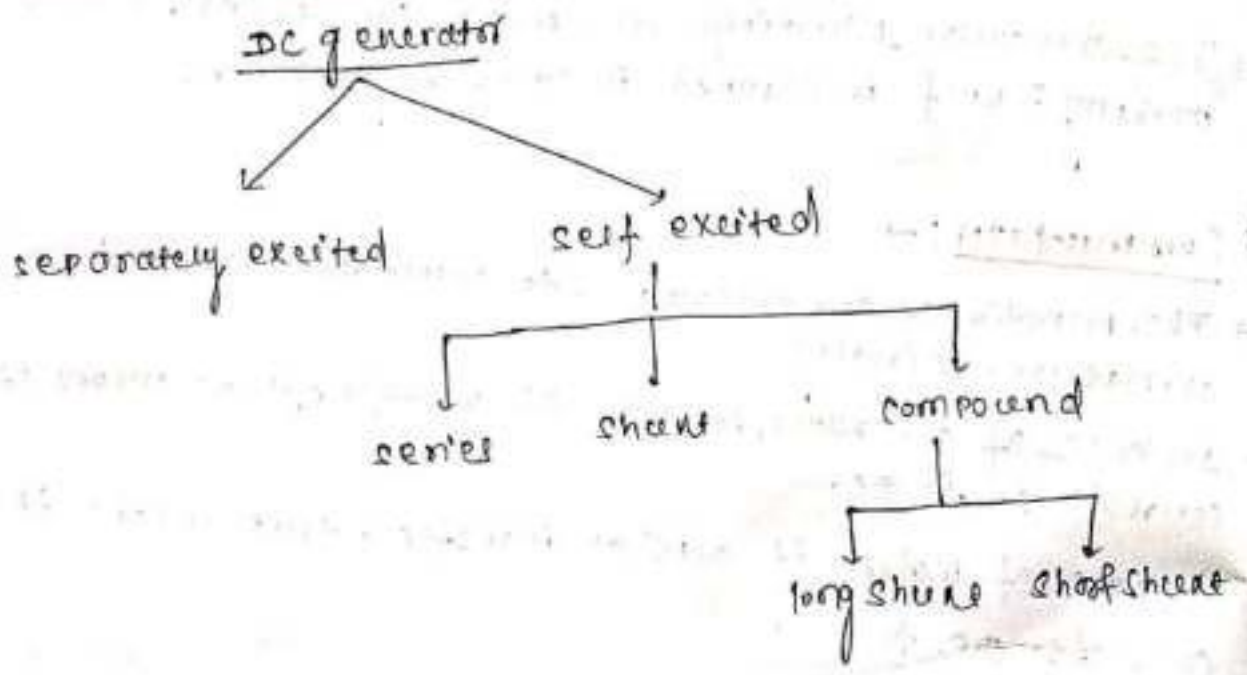 DC generator
separately excited
self excited
series
shunt
compound
long shunt
short shunt